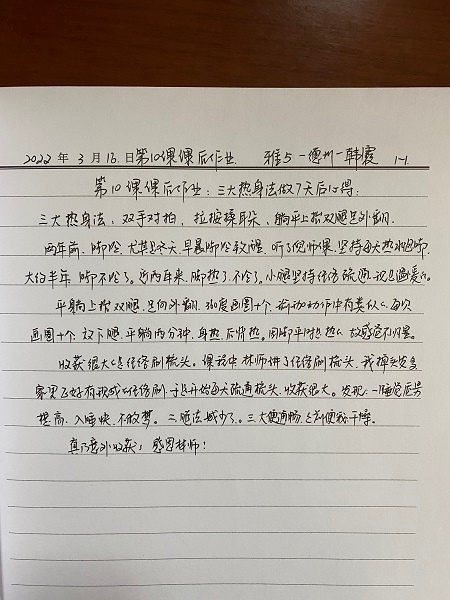 2022年3月16日第10课课后作业 雅5一德州一韩霞 1-1
第10课课后作业：三大热身法做7天后心得：
三大热身法、双手对拍，拉按揉耳朵、躺平上抬双腿足外翻.
两年前，脚冷，尤其是冬天，早晨脚冷较醒. 听了倪师课，坚持每天热水泡脚，
大约半年，脚不冷了。近两年来，脚热了.不冷了。小腿坚持经络疏通，
平躺上抬双腿，足向外翻，360度画圈十个，瑜伽动作中有类似，每次
画圈十个，放下腿，平躺两分钟，身热，后背热。因脚平时是热，故感觉不明显.
收获很大的是经络刷梳头。课程中林师讲了经络刷梳头，我掉头发多
家里正好有经络刷，于是开始每天疏通梳头，收获很大。发现：一睡觉质量
提高，入睡快，不做梦。二脱发减少了。三大便通畅，之前便秘干燥。
真乃意外收获！感恩林师！